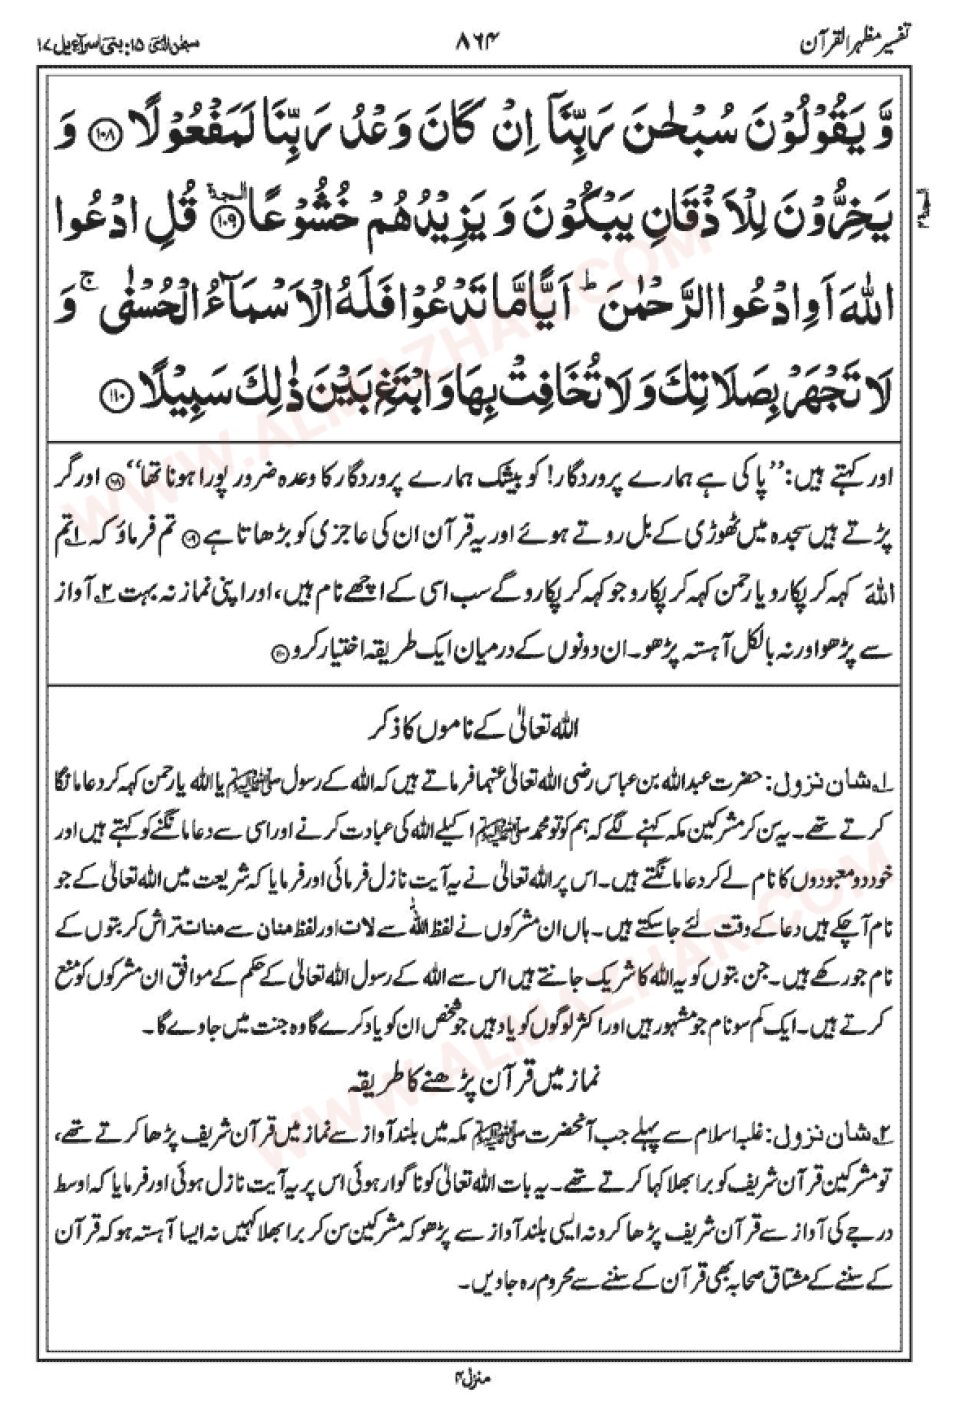 تفسیر مظہر القرآن
۸۶۴
سبحٰن الذی ۱۵: بنی اسرآءیل ۱۷
وَّ یَقُوْلُوْنَ سُبْحٰنَ رَبِّنَاۤ اِنْ كَانَ وَعْدُ رَبِّنَا لَمَفْعُوْلًا ۝۱۰۸ وَ
یَخِرُّوْنَ لِلْاَذْقَانِ یَبْكُوْنَ وَ یَزِیْدُهُمْ خُشُوْعًا ۝۱۰۹ السجدة قُلِ ادْعُوا
اللّٰهَ اَوِ ادْعُوا الرَّحْمٰنَ ؕ اَیًّا مَّا تَدْعُوْا فَلَهُ الْاَسْمَآءُ الْحُسْنٰی ۚ وَ
لَا تَجْهَرْ بِصَلَاتِكَ وَ لَا تُخَافِتْ بِهَا وَ ابْتَغِ بَیْنَ ذٰلِكَ سَبِیْلًا ۝۱۱۰
اور کہتے ہیں: ’’پاکی ہے ہمارے پروردگار! کو بیشک ہمارے پروردگار کا وعدہ ضرور پورا ہونا تھا‘‘ ۝۱۰۸ اور گر
پڑتے ہیں سجدہ میں ٹھوڑی کے بل روتے ہوئے اور یہ قرآن ان کی عاجزی کو بڑھاتا ہے ۝۱۰۹ تم فرماؤ کہ ۱؎ تم
اللہ کہہ کر پکارو یا رحمن کہہ کر پکارو جو کہہ کر پکارو گے سب اسی کے اچھے نام ہیں، اور اپنی نماز نہ بہت ۲؎ آواز
سے پڑھو اور نہ بالکل آہستہ پڑھو۔ ان دونوں کے درمیان ایک طریقہ اختیار کرو ۝۱۱۰
اللہ تعالیٰ کے ناموں کا ذکر
۱؎ شان نزول: حضرت عبداللہ بن عباس رضی اللہ تعالیٰ عنہما فرماتے ہیں کہ اللہ کے رسول ﷺ یا اللہ یا رحمن کہہ کر دعا مانگا
کرتے تھے۔ یہ سن کر مشرکین مکہ کہنے لگے کہ ہم کو تو محمد ﷺ اکیلے اللہ کی عبادت کرنے اور اسی سے دعا مانگنے کو کہتے ہیں اور
خود دو معبودوں کا نام لے کر دعا مانگتے ہیں۔ اس پر اللہ تعالیٰ نے یہ آیت نازل فرمائی اور فرمایا کہ شریعت میں اللہ تعالیٰ کے جو
نام آچکے ہیں دعا کے وقت لئے جاسکتے ہیں۔ ہاں ان مشرکوں نے لفظ اللہ سے لات اور لفظ منان سے منات تراش کر بتوں کے
نام جو رکھے ہیں۔ جن بتوں کو یہ اللہ کا شریک جانتے ہیں اس سے اللہ کے رسول اللہ تعالیٰ کے حکم کے موافق ان مشرکوں کو منع
کرتے ہیں۔ ایک کم سو نام جو مشہور ہیں اور اکثر لوگوں کو یاد ہیں جو شخص ان کو یاد کرے گا وہ جنت میں جاوے گا۔
نماز میں قرآن پڑھنے کا طریقہ
۲؎ شان نزول: غلبہ اسلام سے پہلے جب آنحضرت ﷺ مکہ میں بلند آواز سے نماز میں قرآن شریف پڑھا کرتے تھے،
تو مشرکین قرآن شریف کو برا بھلا کہا کرتے تھے۔ یہ بات اللہ تعالیٰ کو ناگوار ہوئی اس پر یہ آیت نازل ہوئی اور فرمایا کہ اوسط
درجے کی آواز سے قرآن شریف پڑھا کرو نہ ایسی بلند آواز سے پڑھو کہ مشرکین سن کر برا بھلا کہیں نہ ایسا آہستہ ہو کہ قرآن
کے سننے کے مشتاق صحابہ بھی قرآن کے سننے سے محروم رہ جاویں۔
منزل ۴
WWW.ALMAZHAR.COM
WWW.ALMAZHAR.COM